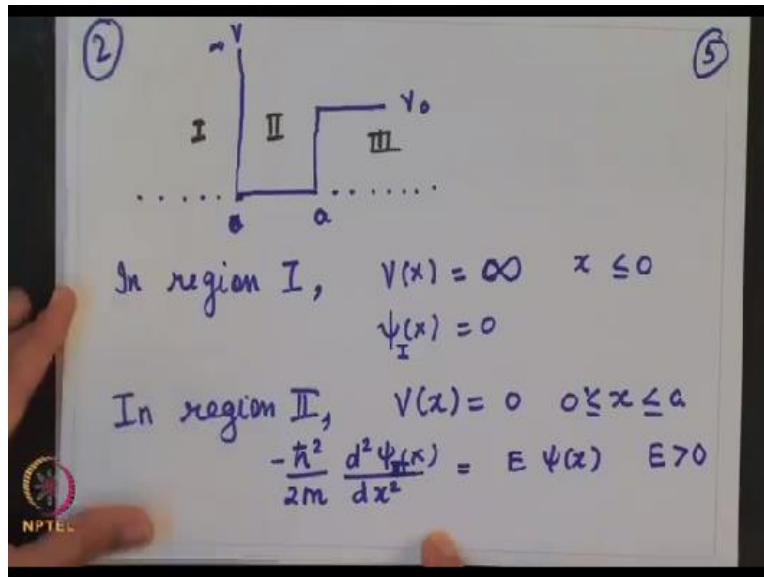 ② ⑤
∞ V
I II V₀
III
0 a
In region I, V(x) = ∞ x ≤ 0
ψ_I(x) = 0
In region II, V(x) = 0 0 ≤ x ≤ a
-ħ²/2m d²ψ_II(x)/dx² = E ψ(x) E > 0
NPTEL